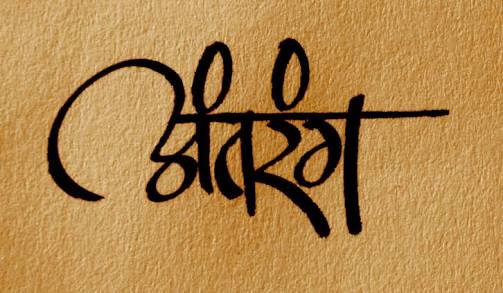 अंतरंग